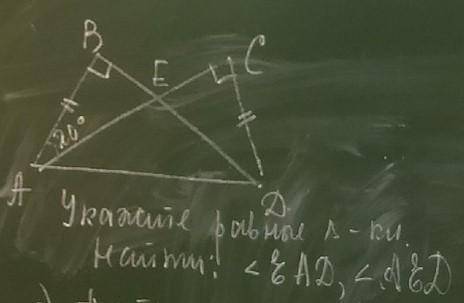 B
E
C
20°
A
D
Укажите равные Δ-ки.
Найти: <EAD, <AED